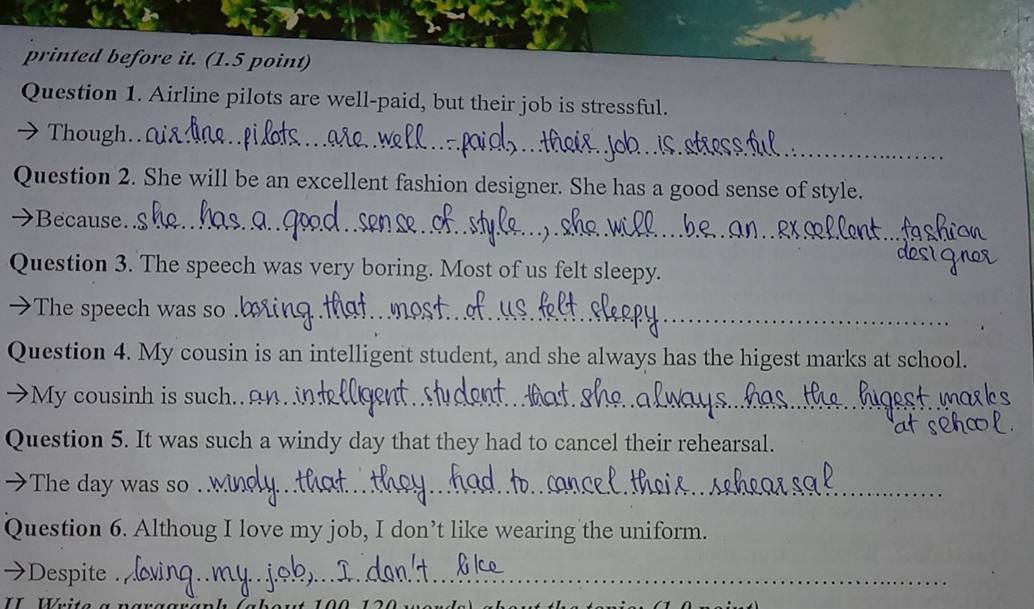 printed before it. (1.5 point)
Question 1. Airline pilots are well-paid, but their job is stressful.
→ Though..airline..pilots...are.well..-paid,...their.job...is.stressful..
Question 2. She will be an excellent fashion designer. She has a good sense of style.
→Because..she..has.a.good..sense.of.style..,.she.will...be.an..excellent..fashion
designer
Question 3. The speech was very boring. Most of us felt sleepy.
→The speech was so .boring.that..most..of.us.felt.sleepy
Question 4. My cousin is an intelligent student, and she always has the higest marks at school.
→My cousinh is such..an.intelligent.student..that.she.always..has..the.higest.marks
at school.
Question 5. It was such a windy day that they had to cancel their rehearsal.
→The day was so ..windy..that..they..had..to..cancel.their..rehearsal
Question 6. Althoug I love my job, I don't like wearing the uniform.
→Despite ..loving..my..job,...I.don't..like
II. Write a paragraph (about 100-120 words) about the topic: (1.0 point)